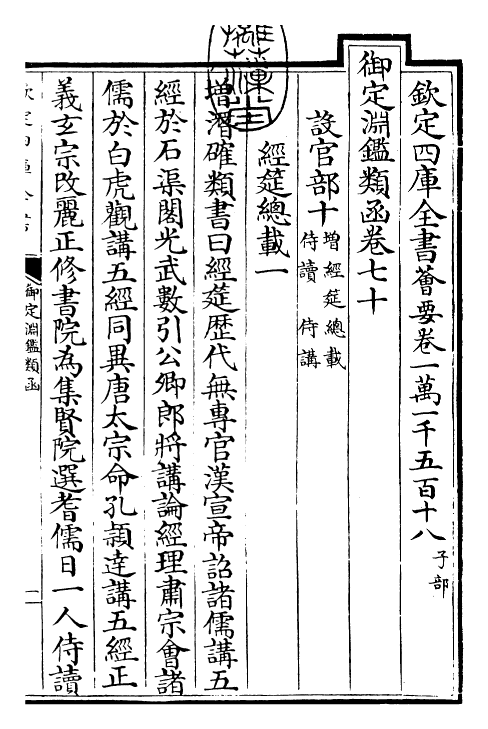 欽定四庫全書薈要卷一萬一千五百十八 子部
御定淵鑑類函卷七十
設官部十 增經筵總載 侍讀 侍講
經筵總載一
增潛確類書曰經筵歷代無專官漢宣帝詔諸儒講五
經於石渠閣光武數引公卿郎將講論經理肅宗會諸
儒於白虎觀講五經同異唐太宗命孔穎達講五經正
義玄宗改麗正修書院為集賢院選耆儒日一人侍讀
御定淵鑑類函
一